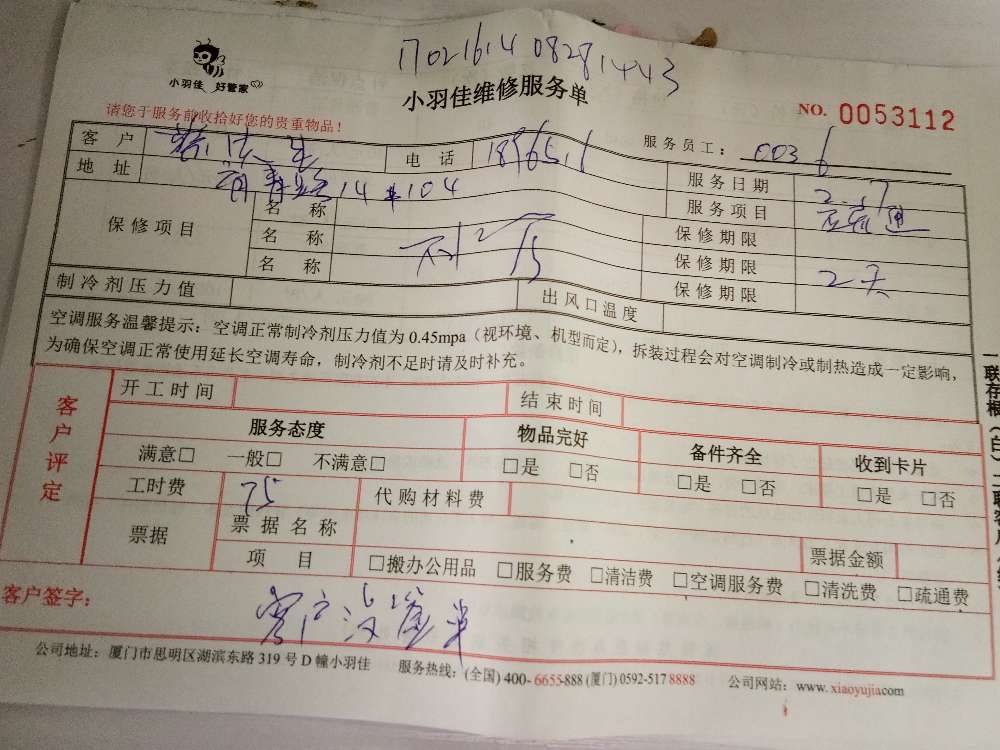 17021614 08281443
小羽佳 好管家
小羽佳维修服务单
NO. 0053112
请您于服务前收拾好您的贵重物品!
服务员工: 0036
客户 电话 189651 服务日期 2.7
地址 14 104 服务项目
保修项目 名称 保修期限
名称 保修期限
名称 保修期限 2天
制冷剂压力值 出风口温度
空调服务温馨提示: 空调正常制冷剂压力值为 0.45mpa (视环境、机型而定), 拆装过程会对空调制冷或制热造成一定影响,
为确保空调正常使用延长空调寿命, 制冷剂不足时请及时补充。
客户评定
开工时间 结束时间
服务态度 物品完好 备件齐全 收到卡片
满意□ 一般□ 不满意□ □是 □否 □是 □否 □是 □否
工时费 75 代购材料费
票据 票据名称 票据金额
项目 □搬办公用品 □服务费 □清洁费 □空调服务费 □清洗费 □疏通费
客户签字: 客户没签单
公司地址: 厦门市思明区湖滨东路 319 号 D 幢小羽佳 服务热线: (全国) 400-6655-888 (厦门) 0592-517 8888 公司网站: www.xiaoyujiacom
一联存根(白)